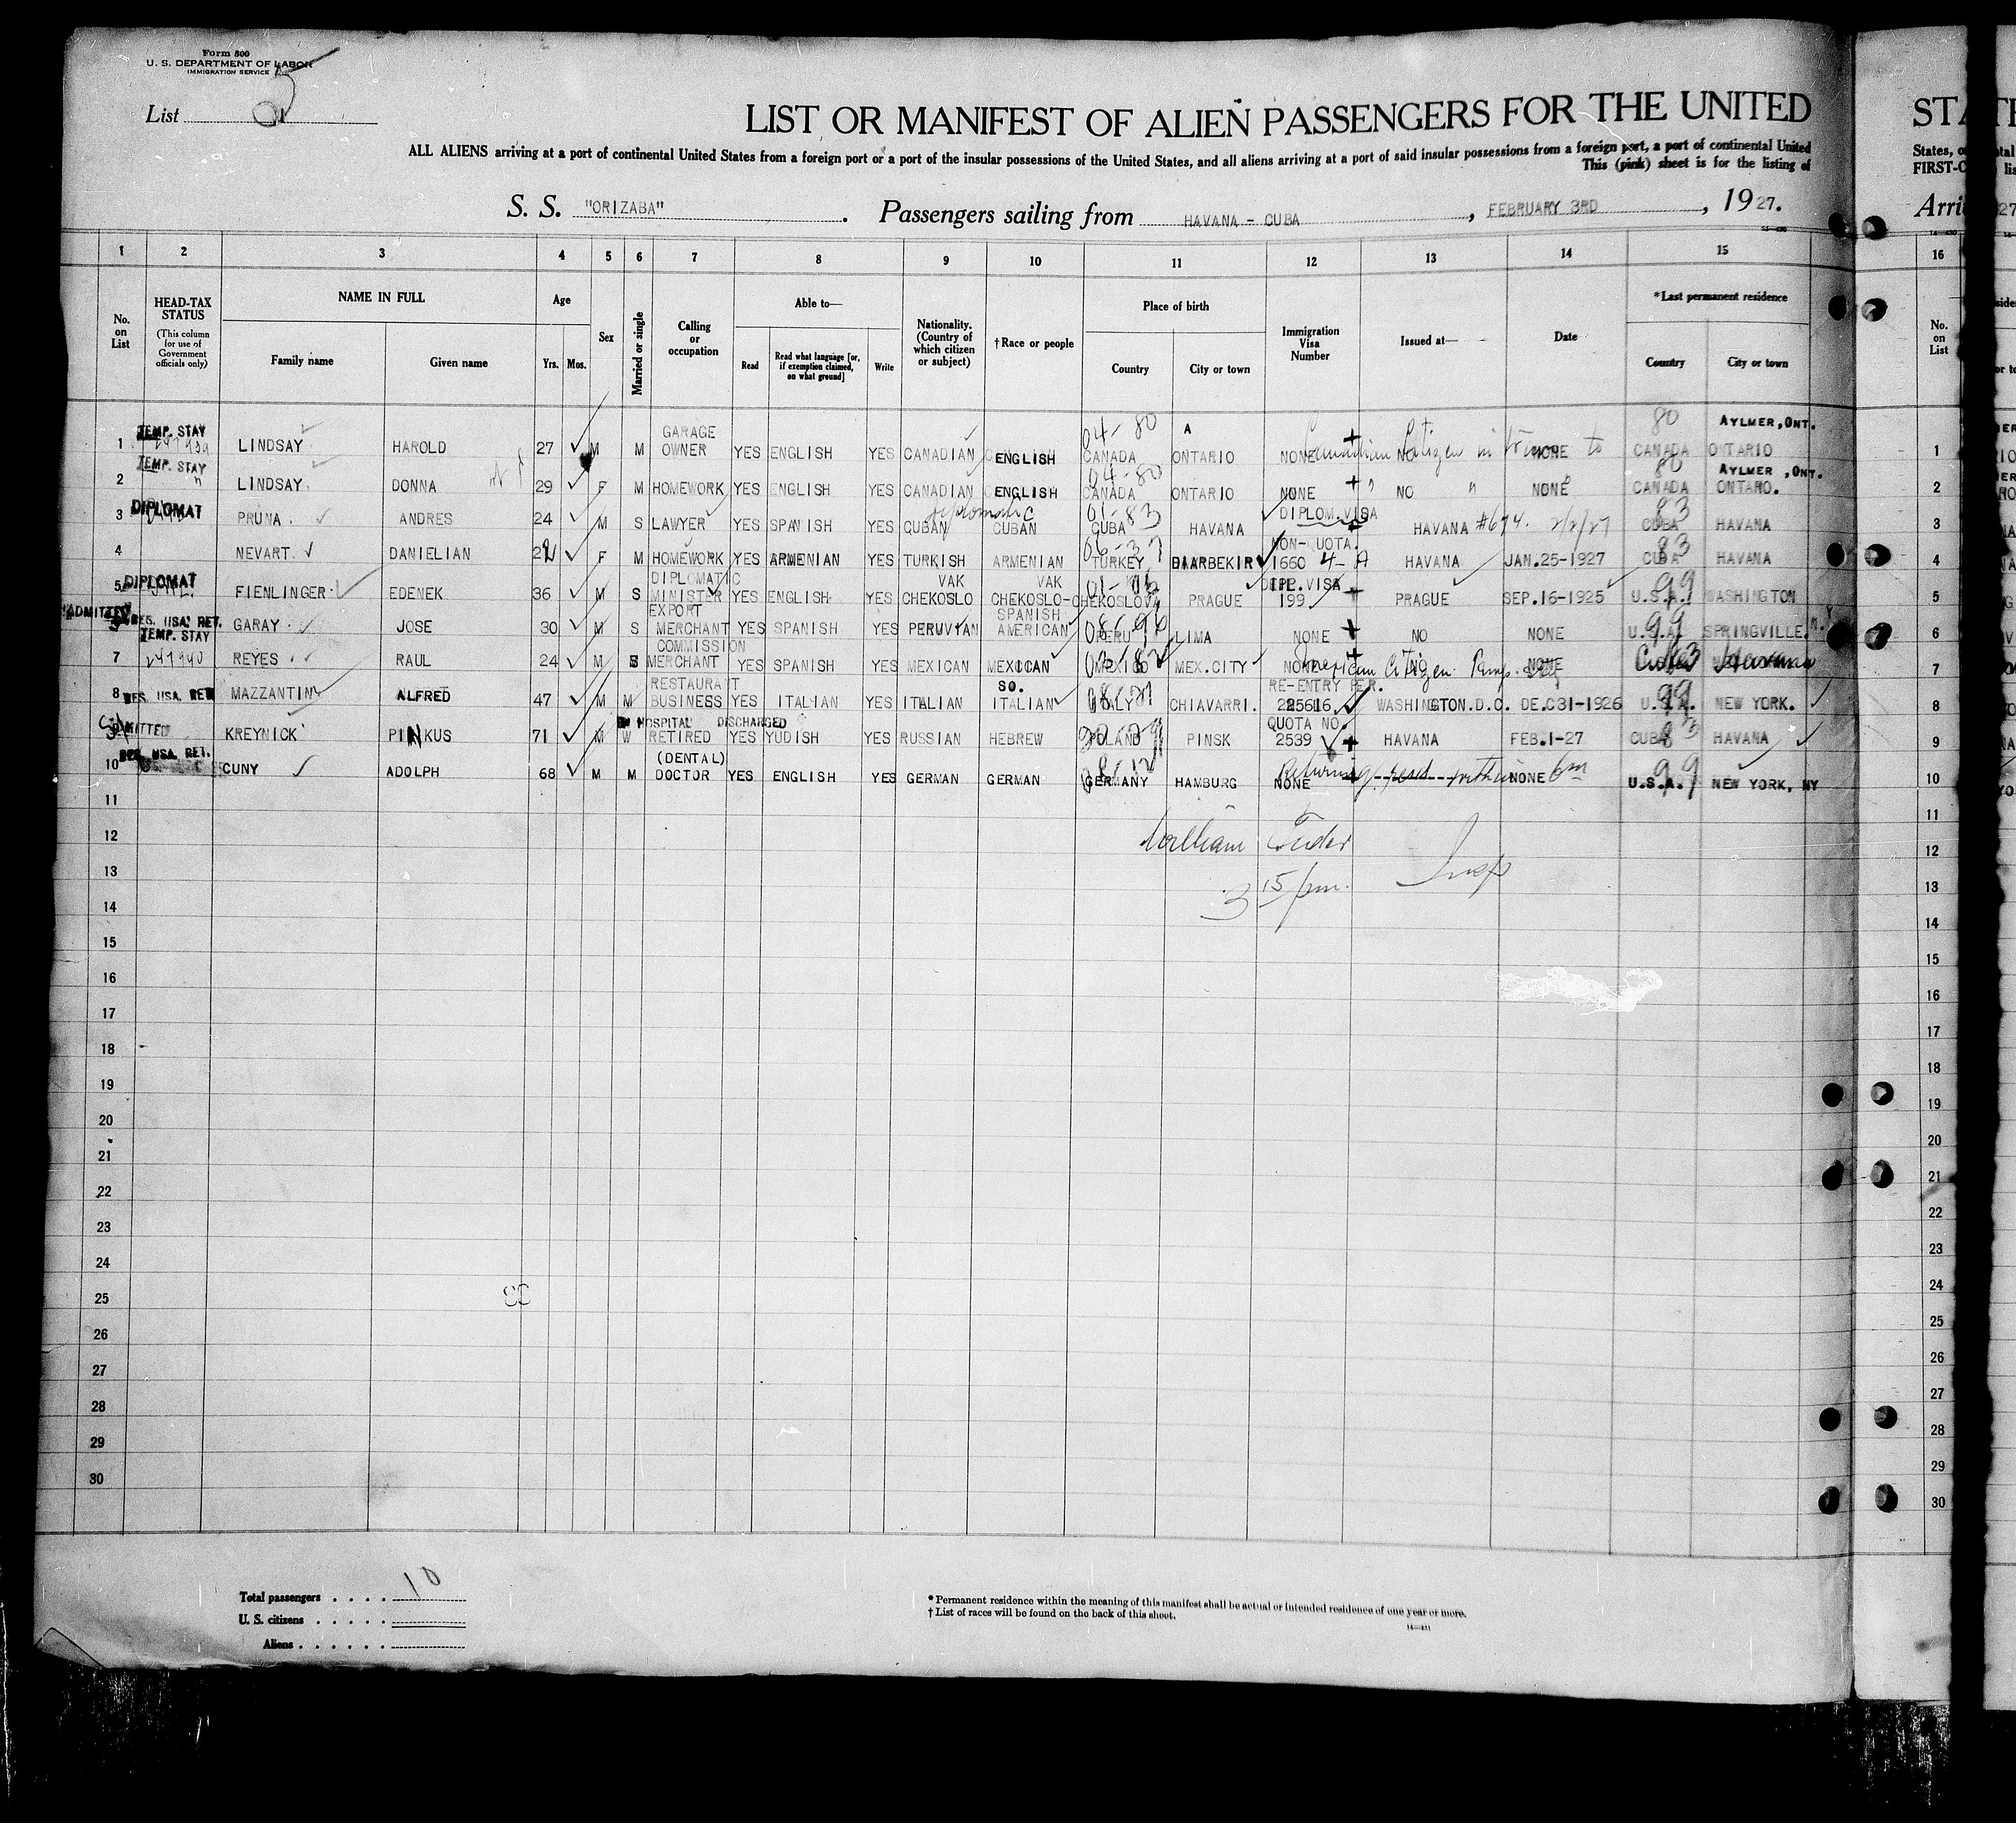 Form 500
U. S. DEPARTMENT OF LABOR
IMMIGRATION SERVICE
List 5
LIST OR MANIFEST OF ALIEN PASSENGERS FOR THE UNITED
ALL ALIENS arriving at a port of continental United States from a foreign port or a port of the insular possessions of the United States, and all aliens arriving at a port of said insular possessions from a foreign port, a port of continental United
This (pink) sheet is for the listing of
S. S. "ORIZABA". Passengers sailing from HAVANA - CUBA, FEBRUARY 3RD, 1927.
1 2 3 4 5 6 7 8 9 10 11 12 13 14 15
No. on List
HEAD-TAX STATUS
(This column for use of Government officials only)
NAME IN FULL
Family name
Given name
Age
Yrs. Mos.
Sex
Married or single
Calling or occupation
Able to—
Read
Read what language [or, if exemption claimed, on what ground]
Write
Nationality. (Country of which citizen or subject)
†Race or people
Place of birth
Country
City or town
Immigration Visa Number
Issued at—
Date
*Last permanent residence
Country
City or town
1 TEMP. STAY LINDSAY HAROLD 27 M M GARAGE OWNER YES ENGLISH YES CANADIAN ENGLISH 04-80 CANADA ONTARIO NONE Canadian Citizen in to NO NONE 80 CANADA AYLMER, ONT. ONTARIO
2 TEMP. STAY LINDSAY. DONNA 29 F M HOMEWORK YES ENGLISH YES CANADIAN ENGLISH 04-80 CANADA ONTARIO NONE " NO " NONE 80 CANADA AYLMER ,ONT. ONTARO.
3 DIPLOMAT PRUNA. ANDRES 24 M S LAWYER YES SPANISH YES CUBAN diplomatic CUBAN 01-83 CUBA HAVANA DIPLOM.VISA HAVANA #674. 2/2/27 83 CUBA HAVANA
4 NEVART. DANIELIAN F M HOMEWORK YES ARMENIAN YES TURKISH ARMENIAN 06-37 TURKEY DIARBEKIR NON-QUOTA. 1660 4-A HAVANA JAN.25-1927 83 CUBA HAVANA
5 DIPLOMAT FIENLINGER. EDENEK 36 M S DIPLOMATIC MINISTER YES ENGLISH. YES CHEKOSLOVAK CHEKOSLOVAK CHEKOSLOV. PRAGUE DIPL.VISA 199 PRAGUE SEP.16-1925 99 U.S.A. WASHINGTON
6 ADMITTED RES. USA. RET. GARAY. JOSE 30 M S EXPORT MERCHANT YES SPANISH YES PERUVIAN SPANISH AMERICAN PERU LIMA NONE NO NONE 99 U.S.A. SPRINGVILLE. N.Y.
7 TEMP. STAY 247940 REYES. RAUL 24 M S COMMISSION MERCHANT YES SPANISH YES MEXICAN MEXICAN MEXICO MEX.CITY NONE Mexican Citizen NO NONE Cuba Havana
8 RES. USA. RET MAZZANTINI ALFRED 47 M M RESTAURANT BUSINESS YES ITALIAN YES ITALIAN SO. ITALIAN ITALY CHIAVARRI. RE-ENTRY PER. 225616 WASHINGTON.D.C. DEC31-1926 99 U.S.A. NEW YORK.
9 ADMITTED KREYNICK PINKUS 71 M W IN HOSPITAL DISCHARGED RETIRED YES YUDISH YES RUSSIAN HEBREW POLAND PINSK QUOTA NO. 2539 HAVANA FEB.1-27 83 CUBA HAVANA
10 RES. USA. RET. CUNY ADOLPH 68 M M (DENTAL) DOCTOR YES ENGLISH YES GERMAN GERMAN GERMANY HAMBURG NONE Returning resid within 6m NONE 99 U.S.A. NEW YORK, NY
11
12 William Tudor
13 Insp
14 3 15/pm.
15
16
17
18
19
20
21
22
23
24
25
26
27
28
29
30
Total passengers . . . . 10
U. S. citizens . . . . .
Aliens . . . . . .
* Permanent residence within the meaning of this manifest shall be actual or intended residence of one year or more.
† List of races will be found on the back of this sheet.
16
No. on List
1
2
3
4
5
6
7
8
9
10
11
12
13
14
15
16
17
18
19
20
21
22
23
24
25
26
27
28
29
30